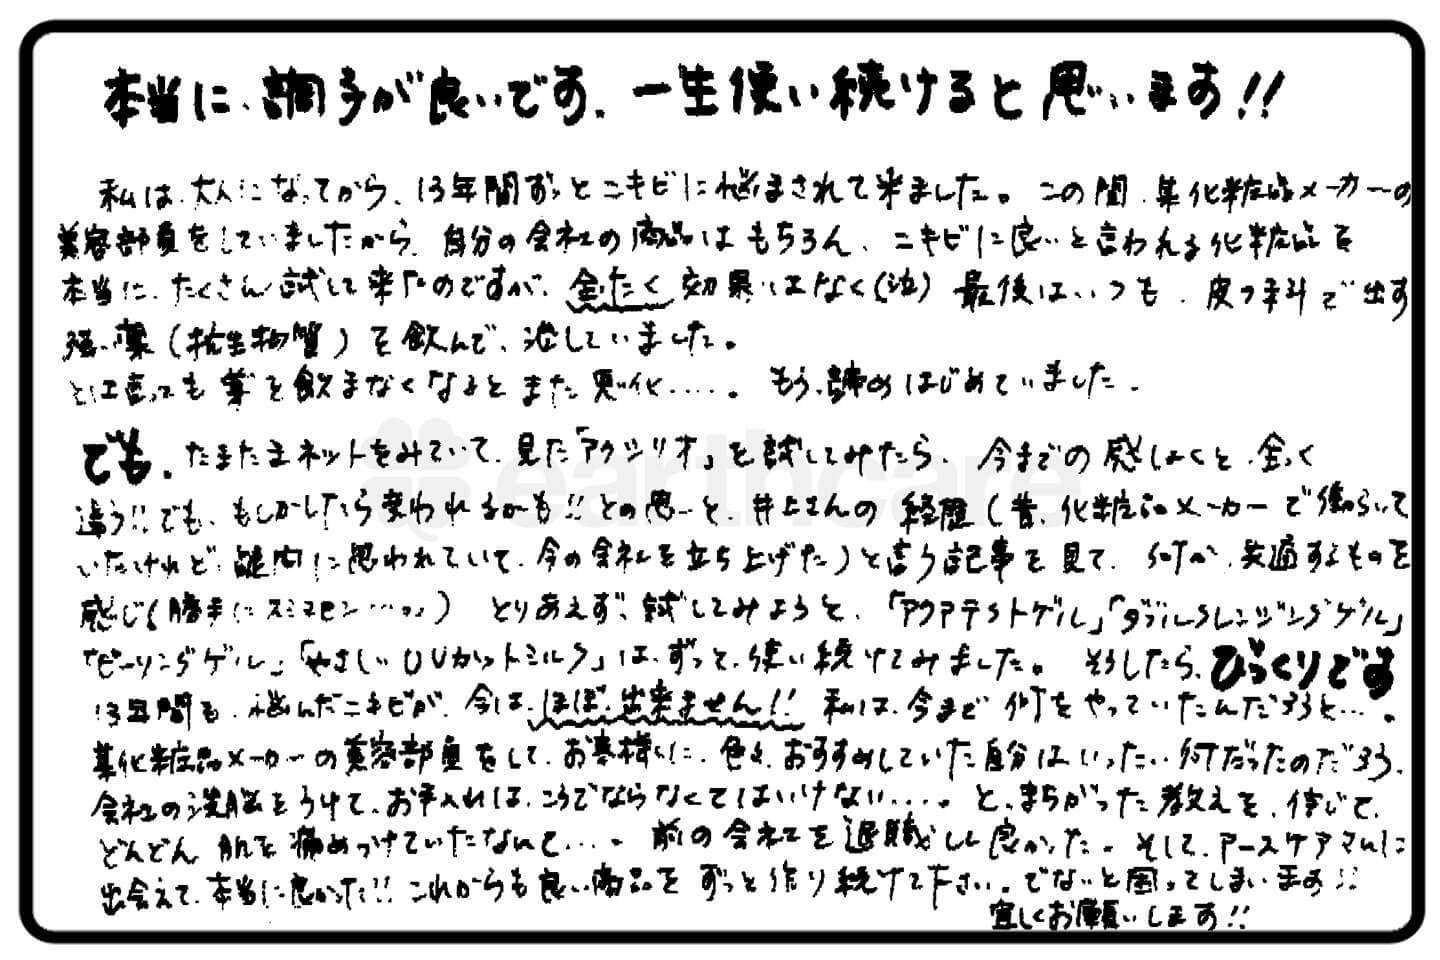 本当に、調子が良いです。一生使い続けると思います!!
私は、大人になってから、13年間ずっとニキビに悩まされて来ました。この間、某化粧品メーカーの
美容部員をしていましたから、自分の会社の商品はもちろん、ニキビに良いと言われる化粧品を
本当に、たくさん試して来たのですが、全たく効果はなく(泣)最後はいつも、皮フ科で出す
強い薬(抗生物質)を飲んで、治していました。
とは言っても薬を飲まなくなるとまた悪化……。もう、諦めはじめていました。
でも、たまたまネットをみていて、見た「アクシリオ」を試してみたら、今までの感じと、全く
違う!!でも、もしかしたら変われるかも!!との思いと、井上さんの経歴(昔、化粧品メーカーで働らいて
いたけれど、疑問に思われていて、今の会社を立ち上げた)と言う記事を見て、何か、共通するものを
感じ(勝手にスミマセン……)とりあえず、試してみようと、「アクアテクトゲル」「ダブルクレンジングゲル」
「ピーリングゲル」「やさしいUVカットミルク」は、ずっと、使い続けてみました。そうしたら、びっくりです
13年間も、悩んだニキビが、今は、ほぼ、出来ません!!私は、今まで何をやっていたんだろうと…。
某化粧品メーカーの美容部員をして、お客様に、色々おすすめしていた自分はいったい何だったのだろう、
会社の洗脳をうけて、お手入れは、こうでなくてはいけない….。と、まちがった教えを、信じて、
どんどん肌を痛めつけていたなんて….。前の会社を退職して良かった。そして、アースケアさんに
出会えて、本当に良かった!!これからも良い商品をずっと作り続けて下さい。でないと困ってしまいます!!
宜しくお願いします!!
earthcare